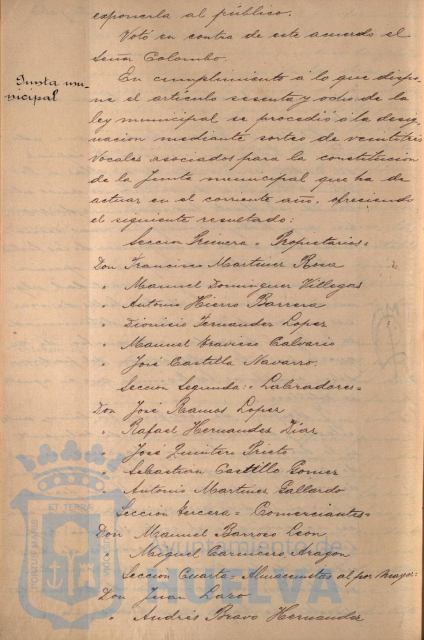 exponerla al público.
Votó en contra de este acuerdo el
Señor Colombo.
Junta mu-
nicipal
En cumplimiento á lo que dispo-
ne el artículo sesenta y ocho de la
ley municipal se procedió á la desig-
nacion mediante sorteo de veintitres
Vocales asociados para la constitucion
de la Junta municipal que ha de
actuar en el corriente año, ofreciendo
el siguiente resultado:
Seccion Primera = Propietarios =
Don Francisco Martinez Rosa
" Manuel Dominguez Villegas
" Antonio Hierro Barrera
" Dionisio Fernandez Lopez
" Manuel Calvario
" José Castilla Navarro.
Seccion Segunda: = Labradores =
Don José Ramos Lopez
" Rafael Hernandez Díaz
" José Quintero Prieto
" Sebastian Castillo Gomez
" Antonio Martinez Gallardo
Seccion tercera = Comerciantes =
Don Manuel Barroso Leon
" Miguel Carrasco Aragon
Seccion Cuarta = Almacenistas al por mayor:
Don Juan Lazo
" Andrés Bravo Hernandez
ET TERRÆ
PORTUS MARIS
CUSTODIA
Ayuntamiento de
HUELVA